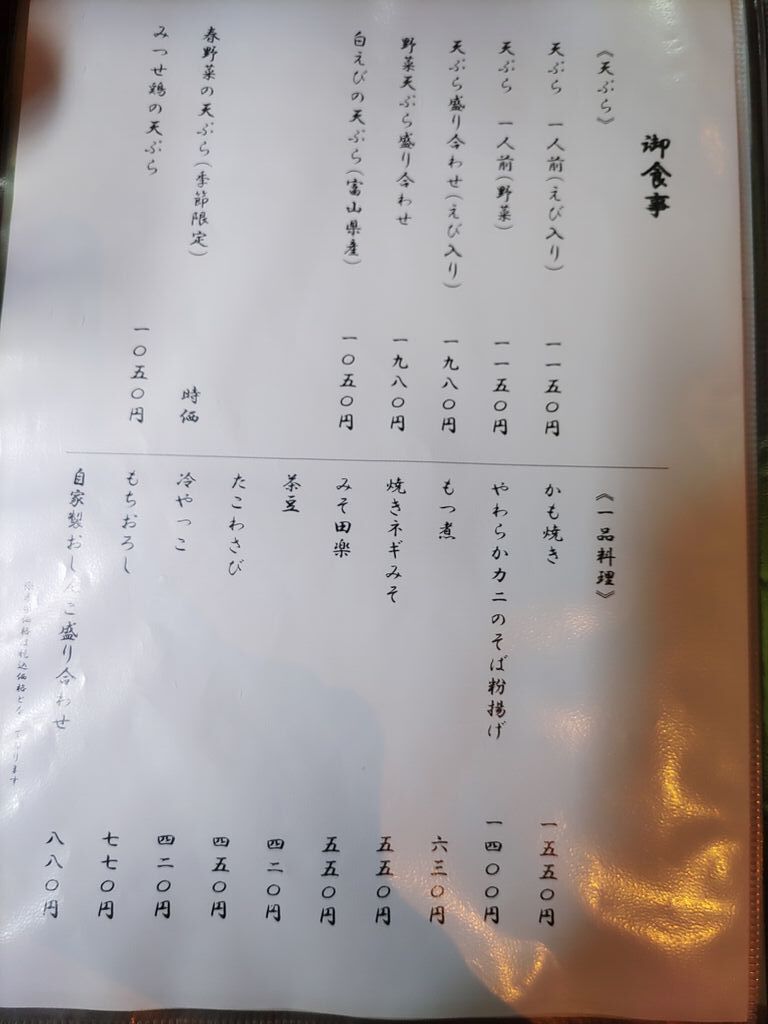 御食事
《天ぷら》
天ぷら 一人前(えび入り) 一一五〇円
天ぷら 一人前(野菜) 一一五〇円
天ぷら盛り合わせ(えび入り) 一九八〇円
野菜天ぷら盛り合わせ 一九八〇円
白えびの天ぷら(富山県産) 一〇五〇円
春野菜の天ぷら(季節限定) 時価
みつせ鶏の天ぷら 一〇五〇円
《一品料理》
かも焼き 一五五〇円
やわらかカニのそば粉揚げ 一四〇〇円
もつ煮 六三〇円
焼きネギみそ 五五〇円
みそ田楽 五五〇円
茶豆 四二〇円
たこわさび 四五〇円
冷やっこ 四二〇円
もちおろし 七七〇円
自家製おしんこ盛り合わせ 八八〇円
価格は税込価格となっております